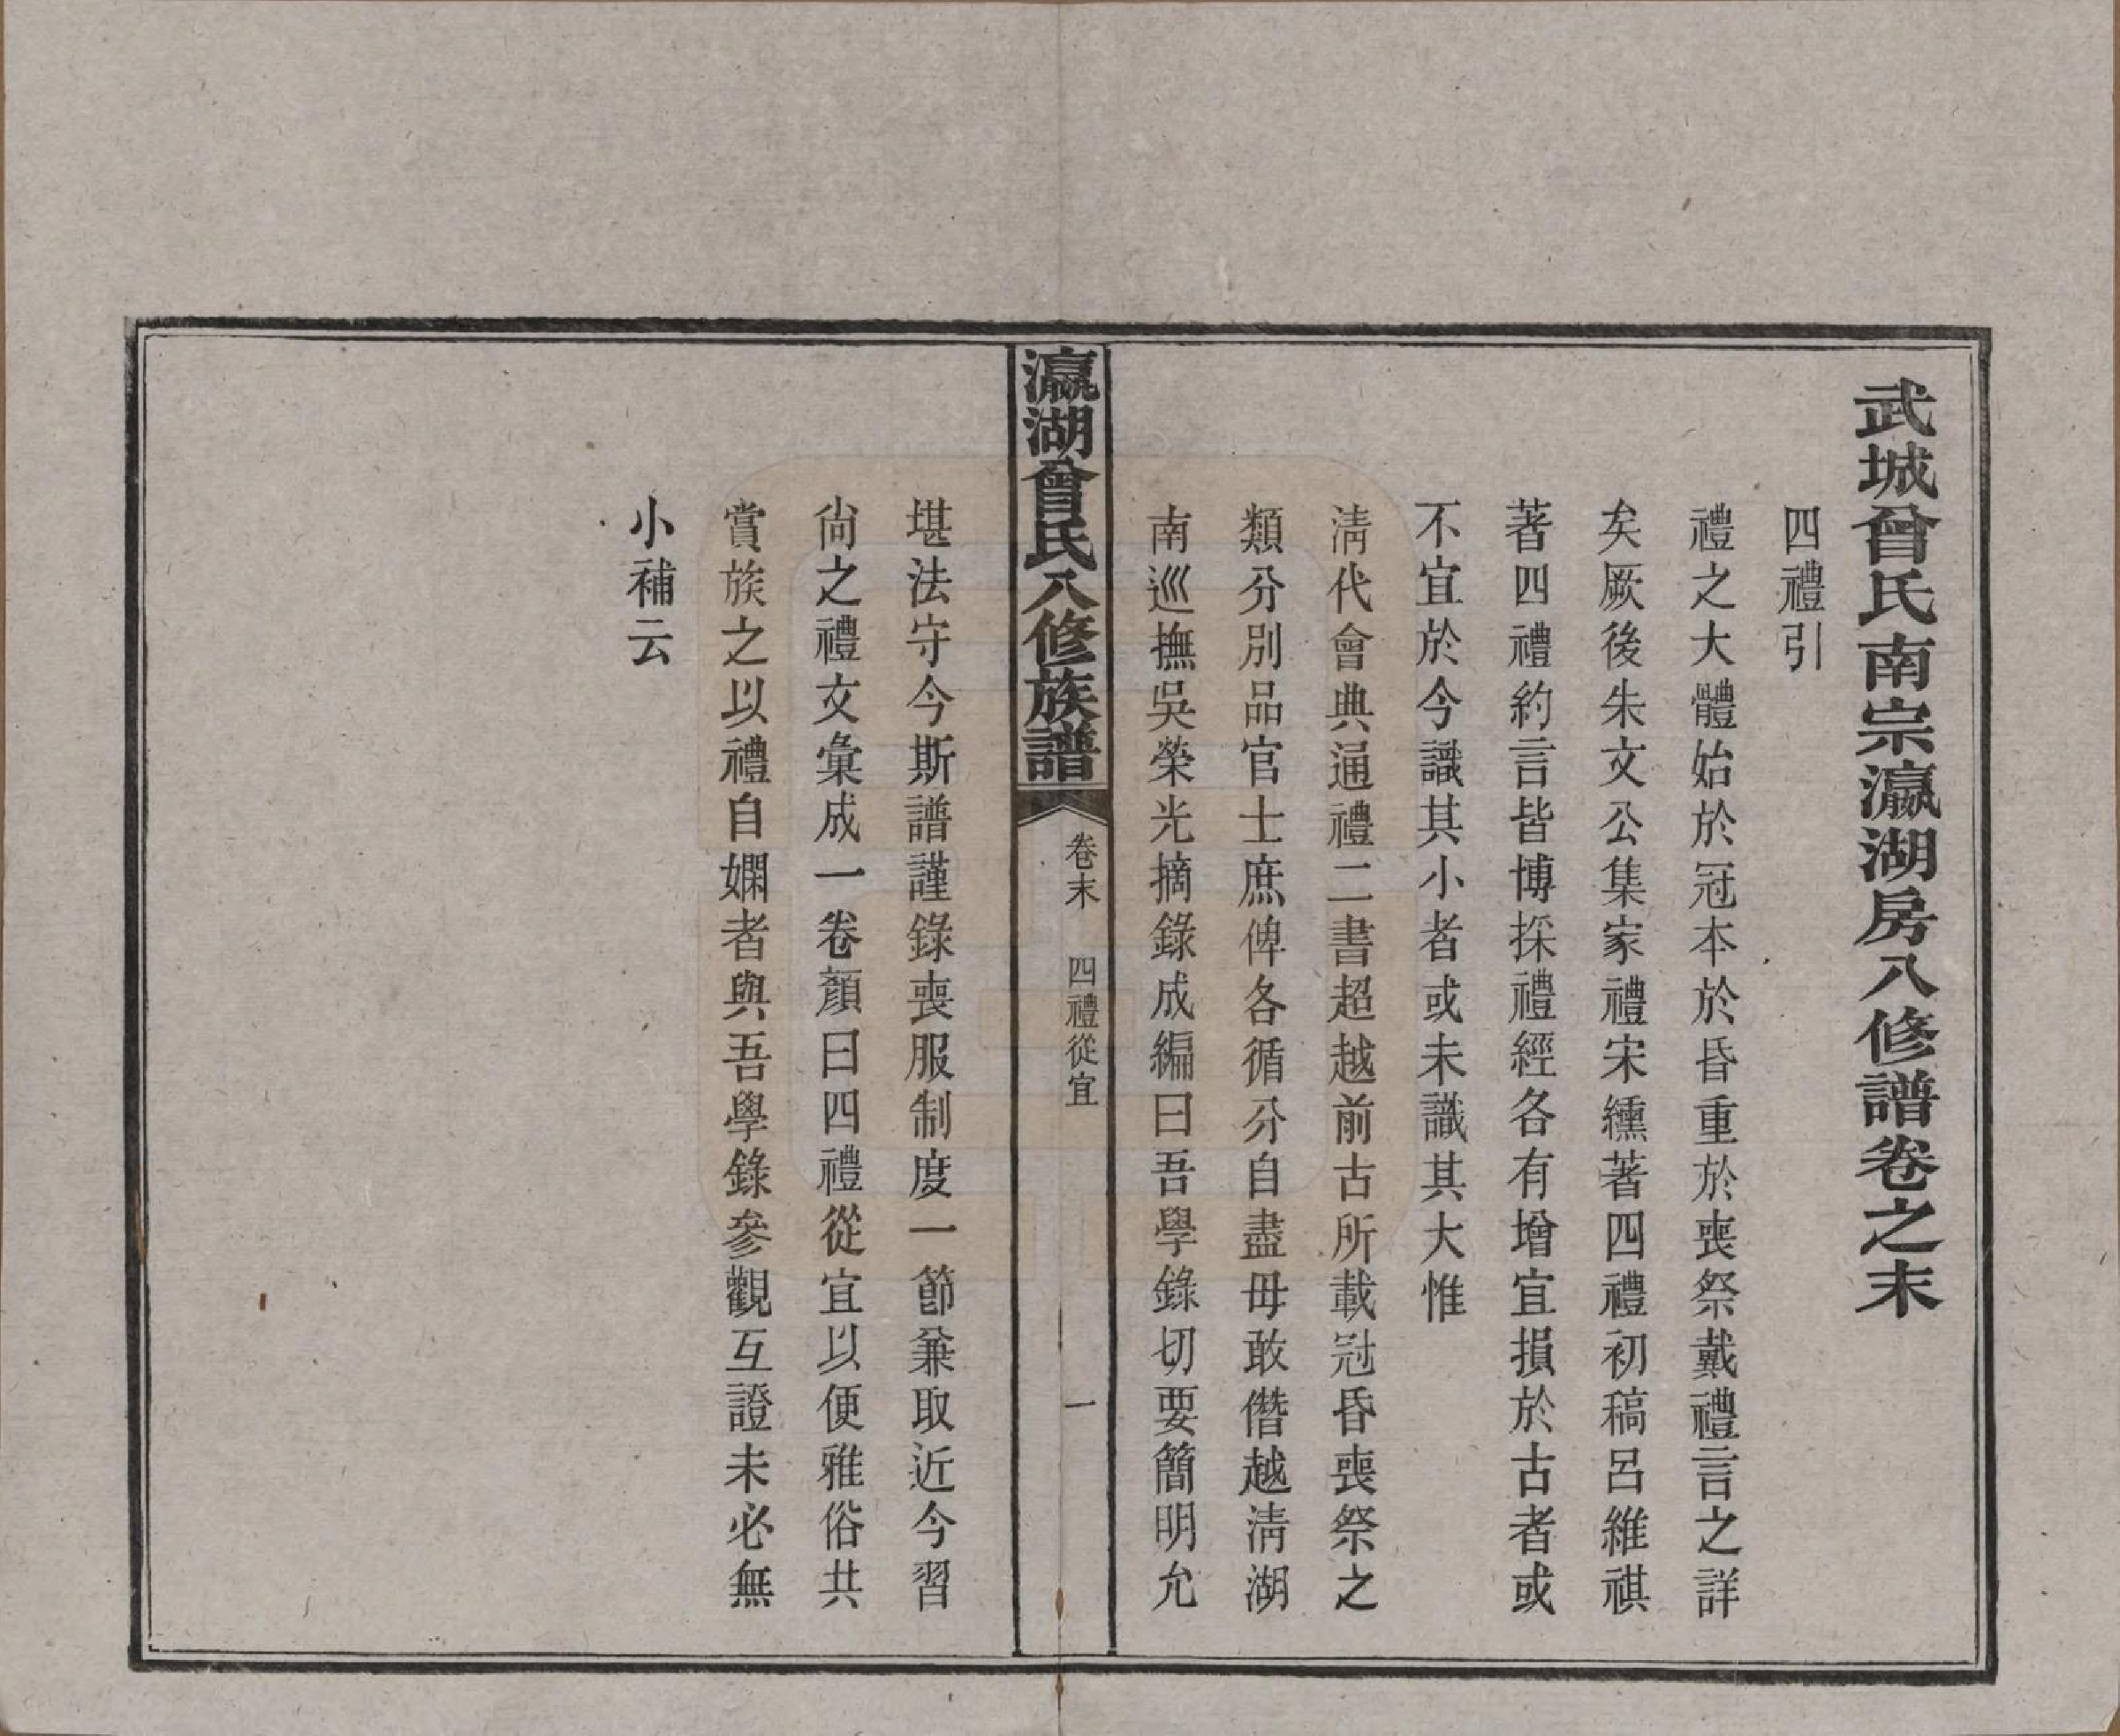 武城曾氏南宗瀛湖房八修譜卷之末
四禮引
禮之大體始於冠本於昏重於喪祭戴禮言之詳
矣厥後朱文公集家禮宋纁著四禮初稿呂維祺
著四禮約言皆博採禮經各有增宜損於古者或
不宜於今識其小者或未識其大惟
淸代會典通禮二書超越前古所載冠昏喪祭之
類分別品官士庶俾各循分自盡毋敢僭越淸湖
南巡撫吳榮光摘錄成編曰吾學錄切要簡明允
瀛湖曾氏八修族譜
卷末 四禮從宜 一
堪法守今斯譜謹錄喪服制度一節兼取近今習
尙之禮文彙成一卷顏曰四禮從宜以便雅俗共
賞族之以禮自嫻者與吾學錄參觀互證未必無
小補云